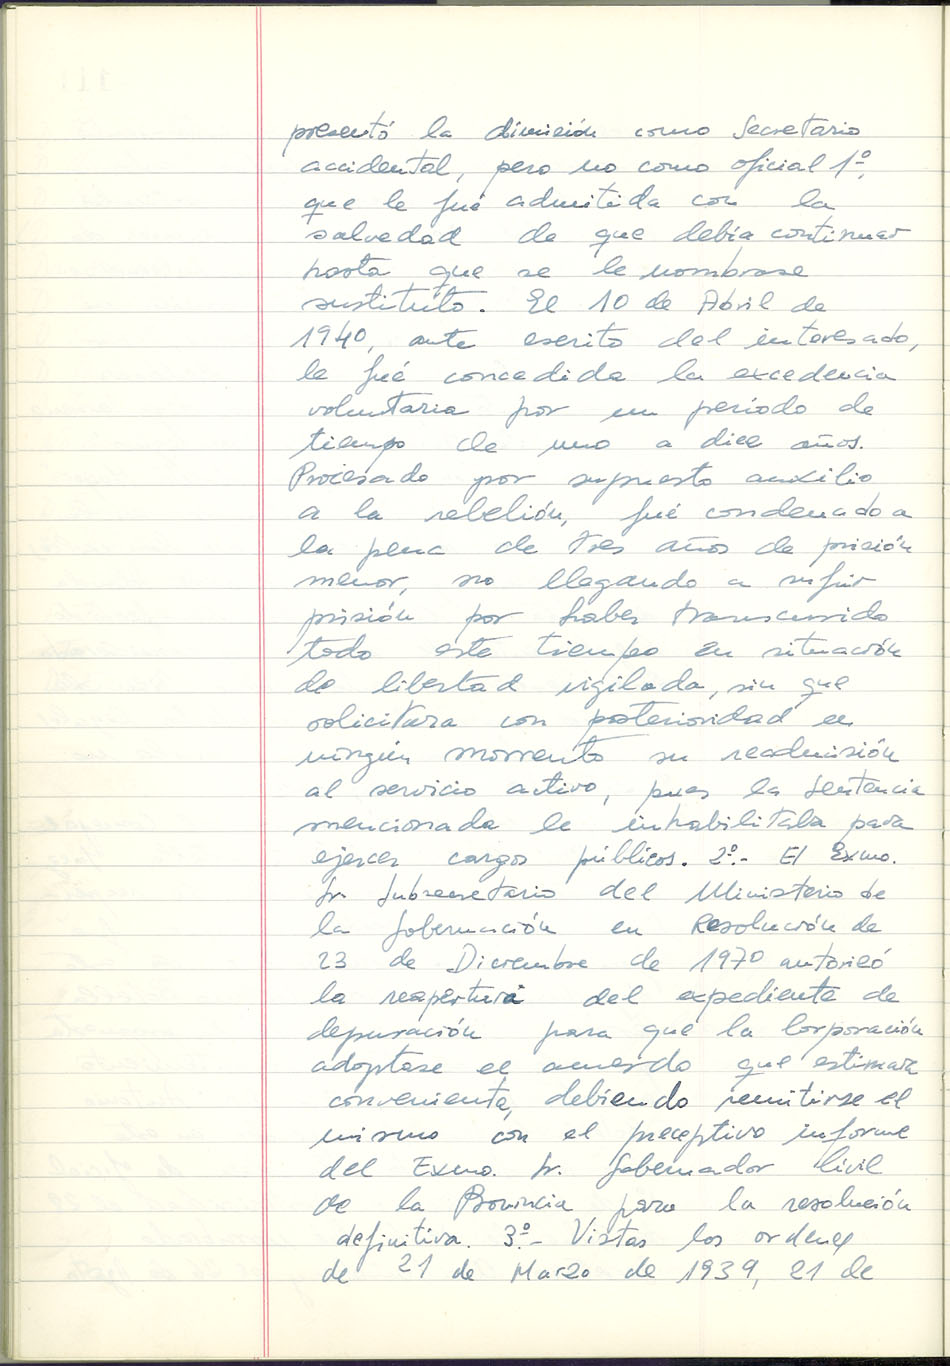 presentó la dimisión como Secretario
accidental, pero no como oficial 1º,
que le fué admitida con la
salvedad de que debía continuar
hasta que se le nombrase
sustituto. El 10 de Abril de
1940, ante escrito del interesado,
le fué concedida la excedencia
voluntaria por un período de
tiempo de uno a diez años.
Procesado por supuesto auxilio
a la rebelión, fué condenado a
la pena de tres años de prisión
menor, no llegando a sufrir
prisión por haber transcurrido
todo este tiempo en situación
de libertad vigilada, sin que
solicitara con posterioridad en
ningún momento su readmisión
al servicio activo, pues la Sentencia
mencionada le inhabilitaba para
ejercer cargos públicos. 2º.- El Exmo.
Sr. Subsecretario del Ministerio de
la Gobernación en Resolución de
23 de Diciembre de 1970 autorizó
la reapertura del expediente de
depuración para que la Corporación
adoptase el acuerdo que estimara
conveniente, debiendo remitirse el
mismo con el preceptivo informe
del Exmo. Sr. Gobernador Civil
de la Provincia para la resolución
definitiva. 3º.- Vistas las ordenes
de 21 de Marzo de 1939, 21 de